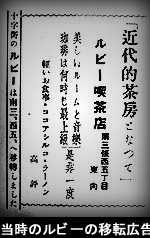 「近代的茶房となつて」
ルビー喫茶店
南三條西五丁目
東向
美しいルームと音樂
珈琲は何時も最上級
是非一度
軽いお食事・ココアシルコ・ラーメン
高評
十字街のルビーは南三、西五、へ移轉しました
当時のルビーの移転広告